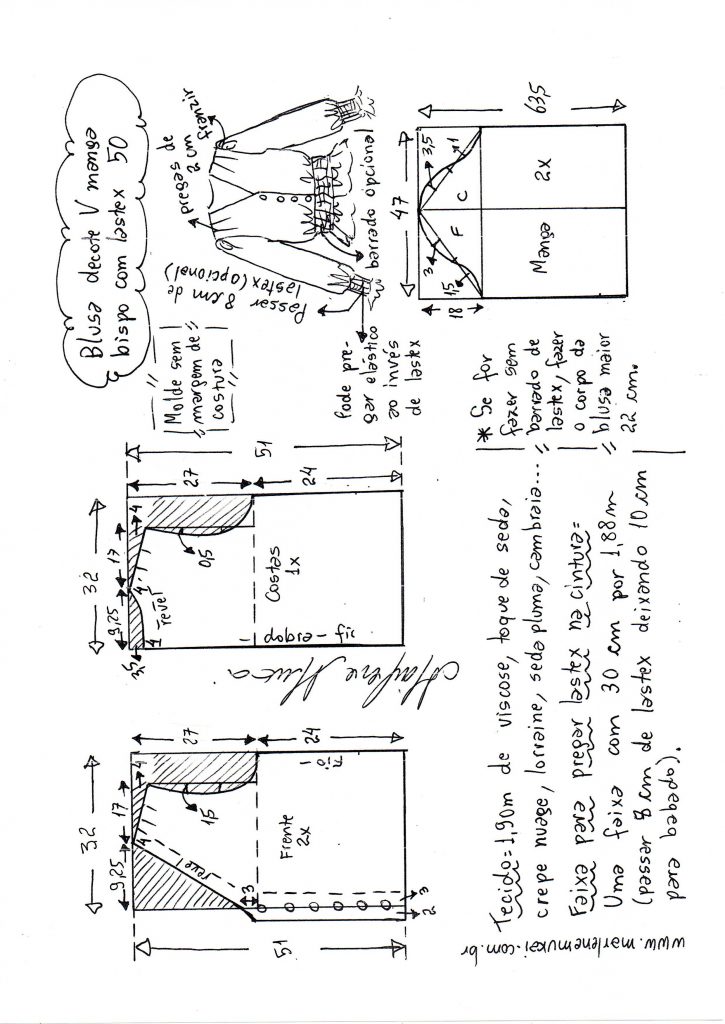 Blusa decote V manga
bispo com lastex 50
Molde sem
margem de
costura
pregas de
2 cm
franzir
Passar 8 cm de
lastex (opcional)
barrado opcional
Pode pre-
gar elástico
ao invés
de lastex
32
9,25
17
4
4
revel
15
27
24
51
3
Frente
2x
Fio
2
3
32
9,25
17
4
4
3,5
1
revel
0,5
27
24
51
Costas
1x
fio - dobra
47
63,5
18
3
15
3,5
1
F
C
Manga
2x
Marlene Mukai
www.marlenemukai.com.br
Tecido=1,90m de viscose, toque de seda,
crepe nuage, lorraine, seda pluma, cambraia...
Faixa para pregar lastex na cintura=
Uma faixa com 30 cm por 1,88m
(passar 8 cm de lastex deixando 10 cm
para babado).
* Se for
fazer sem
barrado de
lastex, fazer
o corpo da
blusa maior
22 cm.